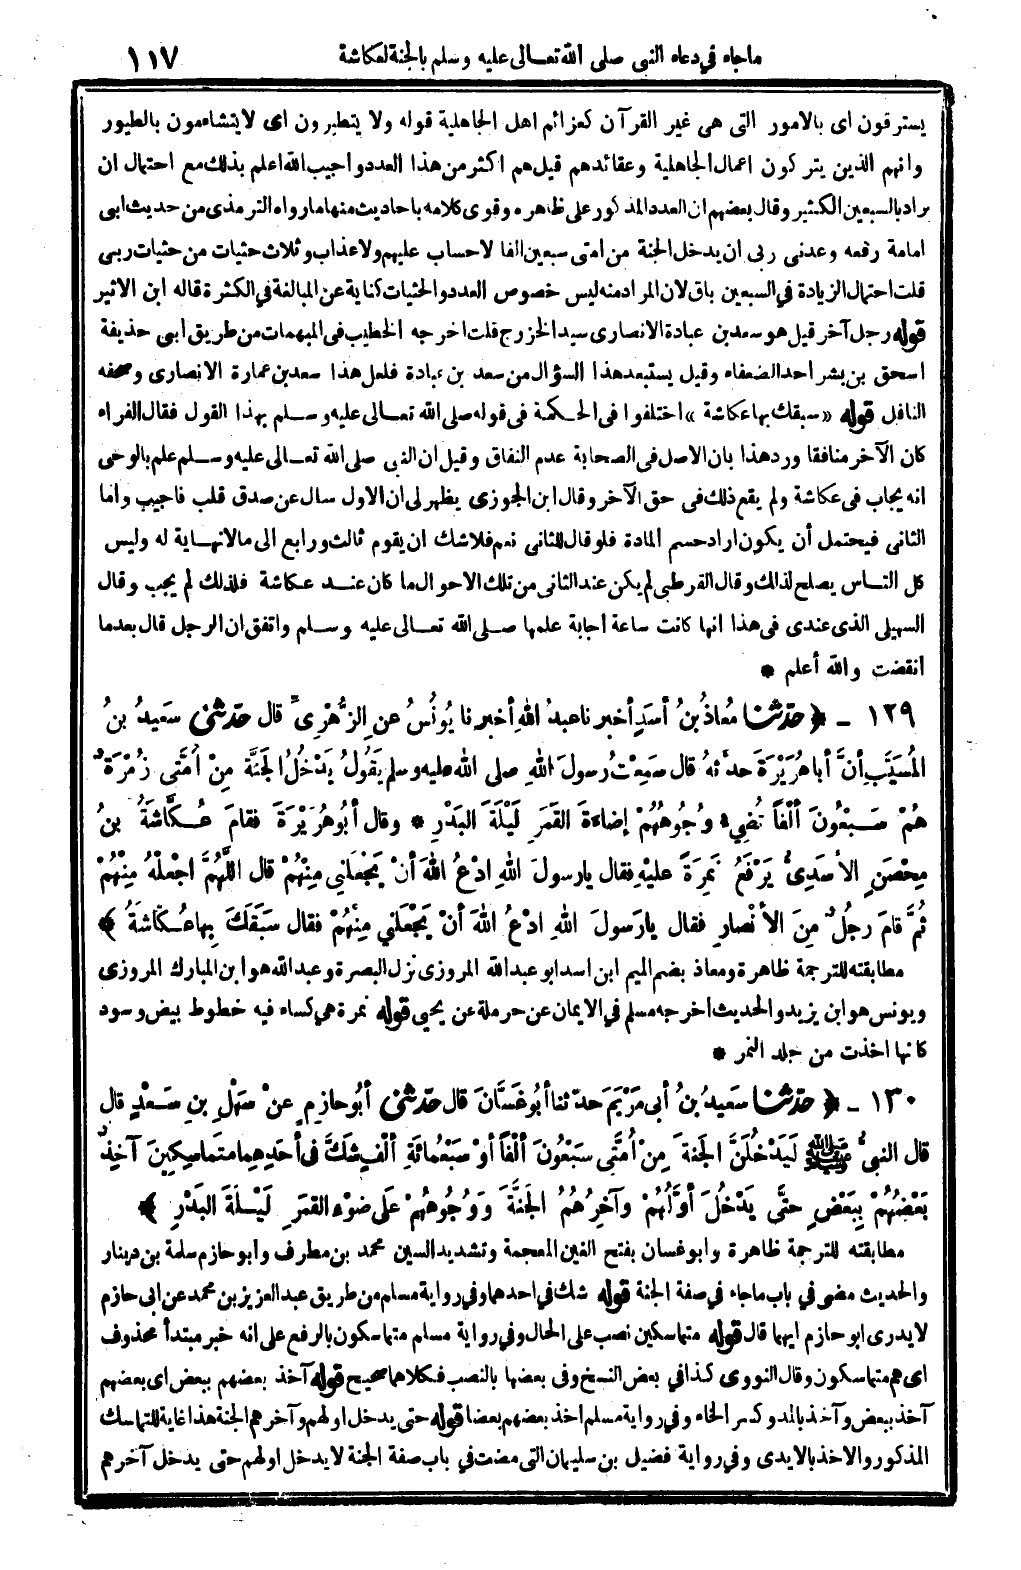 ماجاء في دعاء النبى صلى الله تعالى عليه وسلم بالجنة لعكاشة ١١٧
يسترقون اى بالامور التى هى غير القرآن كعزائم اهل الجاهلية قوله ولا يتطيرون اى لا يتشاءمون بالطيور
وانهم الذين يتركون اعمال الجاهلية وعقائدهم قيل هم اكثر من هذا العدد واجيب الله اعلم بذلك مع احتمال ان
يراد بالسبعين الكثير وقال بعضهم ان العدد المذكور على ظاهره وقوى كلامه باحاديث منها مارواه الترمذى من حديث ابى
امامة رفعه وعدنى ربى ان يدخل الجنة من امتى سبعين الفا لا حساب عليهم ولا عذاب وثلاث حثيات من حثيات ربى
قلت احتمال الزيادة فى السبعين باق لان المراد منه ليس خصوص العدد والحثيات كناية عن المبالغة فى الكثرة قاله ابن الاثير
قوله رجل آخر قيل هو سعد بن عبادة الانصارى سيد الخزرج قلت اخرجه الخطيب فى المبهمات من طريق ابى حذيفة
اسحق بن بشر احد الضعفاء وقيل يستبعد هذا السؤال من سعد بن عبادة فلعل هذا سعد بن عمارة الانصارى وصحفه
الناقل قوله «سبقك بها عكاشة» اختلفوا فى الحكمة فى قوله صلى الله تعالى عليه وسلم بهذا القول فقال الفراء
كان الآخر منافقا ورد هذا بان الاصل فى الصحابة عدم النفاق وقيل ان النبى صلى الله تعالى عليه وسلم علم بالوحى
انه يجاب فى عكاشة ولم يقع ذلك فى حق الآخر وقال ابن الجوزى يظهر لى ان الاول سال عن صدق قلب فاجيب واما
الثانى فيحتمل أن يكون اراد حسم المادة فلو قال للثانى نعم فلا شك ان يقوم ثالث ورابع الى مالانهاية له وليس
كل الناس يصلح لذلك وقال القرطبى لم يكن عند الثانى من تلك الاحوال ما كان عند عكاشة فلذلك لم يجب وقال
السهيلى الذى عندى فى هذا انها كانت ساعة أجابة علمها صلى الله تعالى عليه وسلم واتفق ان الرجل قال بعدما
انقضت والله أعلم *
١٢٩ ـ ﴿ حدثنا مُعاذُ بنُ أسَدٍ أخبرنا عبدُ اللهِ أخبرنا يُونُسُ عن الزُّهْرِىِّ قال حدثنى سَعِيدُ بنُ
المُسَيَّبِ أنَّ أبا هُرَيْرَةَ حدَّثهُ قال سَمِعْتُ رسولَ اللهِ صلى الله عليه وسلم يَقُولُ يَدْخُلُ الجَنَّةَ مِنْ اُمَّتى زُمْرَةٌ
هُمْ سَبْعُونَ ألْفاً تُضِىءُ وُجُوهُهُمْ إضاءَةَ القَمَرِ لَيْلَةَ البَدْرِ * وقال أبُو هُرَيْرَةَ فقامَ عُكَّاشَةُ بنُ
مِحْصَنٍ الأسَدِىُّ يَرْفَعُ نَمِرَةً عليْهِ فقال يا رسولَ اللهِ ادْعُ اللهَ أنْ يَجْعَلَنِي مِنْهُمْ قال اللَّهُمَّ اجْعَلْهُ مِنْهُمْ
ثُمَّ قامَ رجُلٌ مِنَ الأنْصارِ فقال يا رَسولَ اللهِ ادْعُ اللهَ أنْ يَجْعَلَنِي مِنْهُمْ فقال سَبَقَكَ بِها عُكاشَةُ ﴾
مطابقته للترجمة ظاهرة ومعاذ بضم الميم ابن اسد ابو عبد الله المروزى نزل البصرة وعبد الله هو ابن المبارك المروزى
ويونس هو ابن يزيد والحديث اخرجه مسلم في الايمان عن حرملة عن يحيى قوله نمرة هي كساء فيه خطوط بيض وسود
كانها اخذت من جلد النمر *
١٣٠ ـ ﴿ حدثنا سَعِيدُ بنُ أبى مَرْيَمَ حدّثنا أبُو غَسَّانَ قال حدثنى أبُو حازِمٍ عنْ سَهْلِ بنِ سَعْدٍ قال
قال النبىُّ ﷺ لَيَدْخُلَنَّ الجنةَ مِنْ اُمَّتِى سَبْعُونَ ألْفاً أوْ سَبْعُمائَةِ ألْفٍ شَكَّ فى أحَدِهِما مُتَماسِكِينَ آخِذٌ
بَعْضُهُمْ بِبَعْضٍ حتَّى يَدْخُلَ أوَّلُهُمْ وآخِرُهُمُ الجَنَّةَ وَوُجُوهُهُمْ عَلى ضَوْءِ القمَرِ لَيْلَةَ البَدْرِ ﴾
مطابقته للترجمة ظاهرة وابو غسان بفتح الغين المعجمة وتشديد السين محمد بن مطرف وابو حازم سلمة بن دينار
والحديث مضى في باب ماجاء في صفة الجنة قوله شك في احدهما وفي رواية مسلم من طريق عبد العزيز بن محمد عن ابى حازم
لا يدرى ابو حازم ايهما قال قوله متماسكين نصب على الحال وفي رواية مسلم متماسكون بالرفع على انه خبر مبتدأ محذوف
اى هم متماسكون وقال النووى كذا في بعض النسخ وفى بعضها بالنصب فكلاهما صحيح قوله آخذ بعضهم ببعض اى بعضهم
آخذ ببعض وآخذ بالمد وكسر الخاء وفي رواية مسلم اخذ بعضهم بعضا قوله حتى يدخل اولهم وآخرهم الجنة هذا غاية للتماسك
المذكور والاخذ بالايدى وفي رواية فضيل بن سليمان التى مضت في باب صفة الجنة لا يدخل اولهم حتى يدخل آخرهم